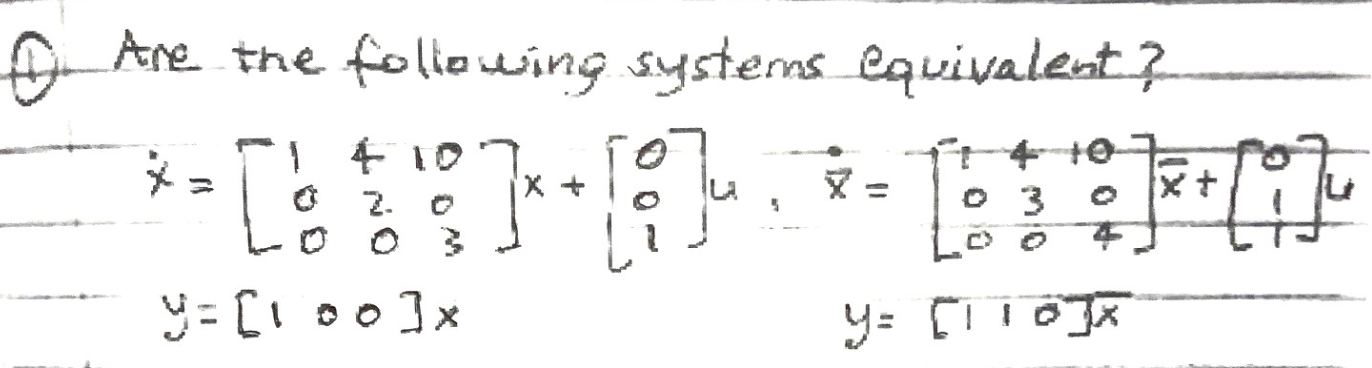 ① Are the following systems equivalent?
ẋ = [1 4 10; 0 2 0; 0 0 3] x + [0; 0; 1] u, x̄̇ = [1 4 10; 0 3 0; 0 0 4] x̄ + [0; 1; 1] u
y = [1 0 0] x y = [1 1 0] x̄